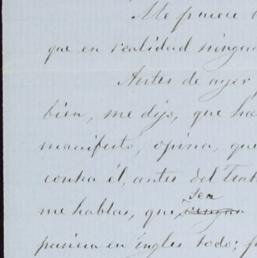 Me parece
que en realidad ningun
Antes de ayer
bien, me dijo, que ha
manifiesto, opina, que
contra él, antes del Trat
sea
me hablas, que vengan
pusiera en ingles todo; f